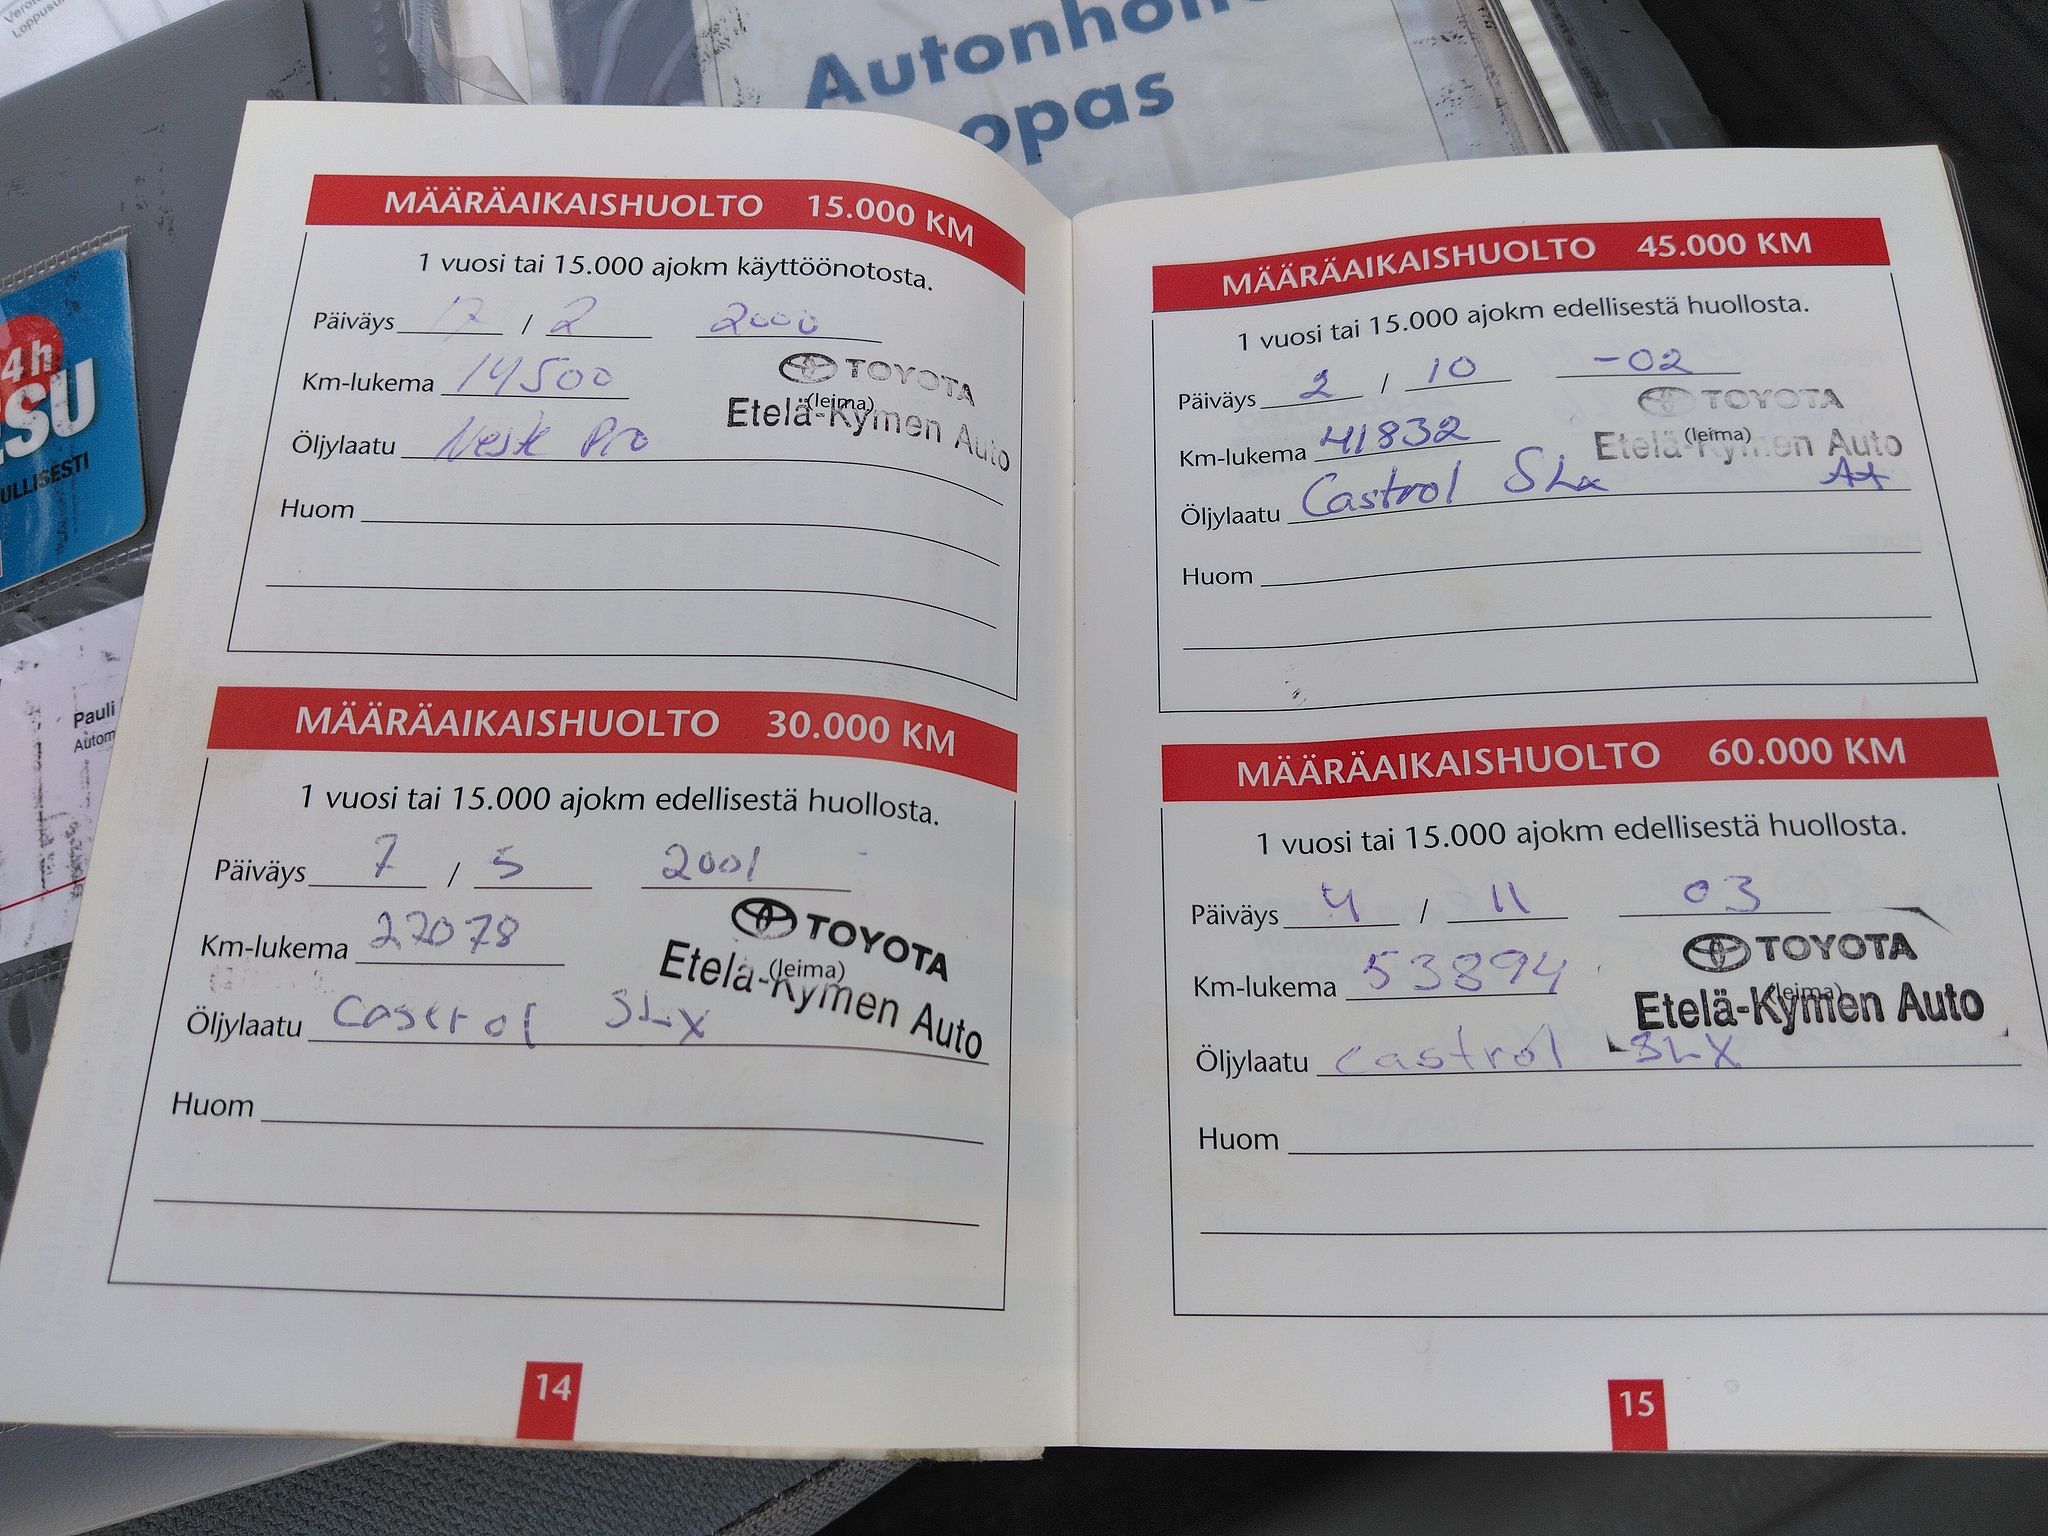 Autonhoito
opas
4h
ESU
ULLISESTI
Pauli
Autom
MÄÄRÄAIKAISHUOLTO 15.000 KM
1 vuosi tai 15.000 ajokm käyttöönotosta.
Päiväys 17 / 2 2000
Km-lukema 14500
TOYOTA
(leima)
Etelä-Kymen Auto
Öljylaatu Neste Pro
Huom
MÄÄRÄAIKAISHUOLTO 30.000 KM
1 vuosi tai 15.000 ajokm edellisestä huollosta.
Päiväys 7 / 5 2001
Km-lukema 27078
TOYOTA
(leima)
Etelä-Kymen Auto
Öljylaatu Castrol SLX
Huom
14
MÄÄRÄAIKAISHUOLTO 45.000 KM
1 vuosi tai 15.000 ajokm edellisestä huollosta.
Päiväys 2 / 10 -02
Km-lukema 41832
TOYOTA
(leima)
Etelä-Kymen Auto
Öljylaatu Castrol SLx
Huom
MÄÄRÄAIKAISHUOLTO 60.000 KM
1 vuosi tai 15.000 ajokm edellisestä huollosta.
Päiväys 4 / 11 03
Km-lukema 53894
TOYOTA
(leima)
Etelä-Kymen Auto
Öljylaatu castrol SLX
Huom
15